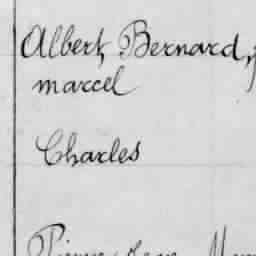 Albert, Bernard,
marcel
Charles